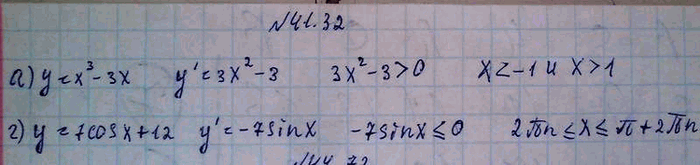 №41.32
а) y = x³-3x y' = 3x²-3 3x²-3>0 x<-1 и x>1
г) y = 7cosx+12 y' = -7sinx -7sinx ≤ 0 2πn ≤ x ≤ π+2πn